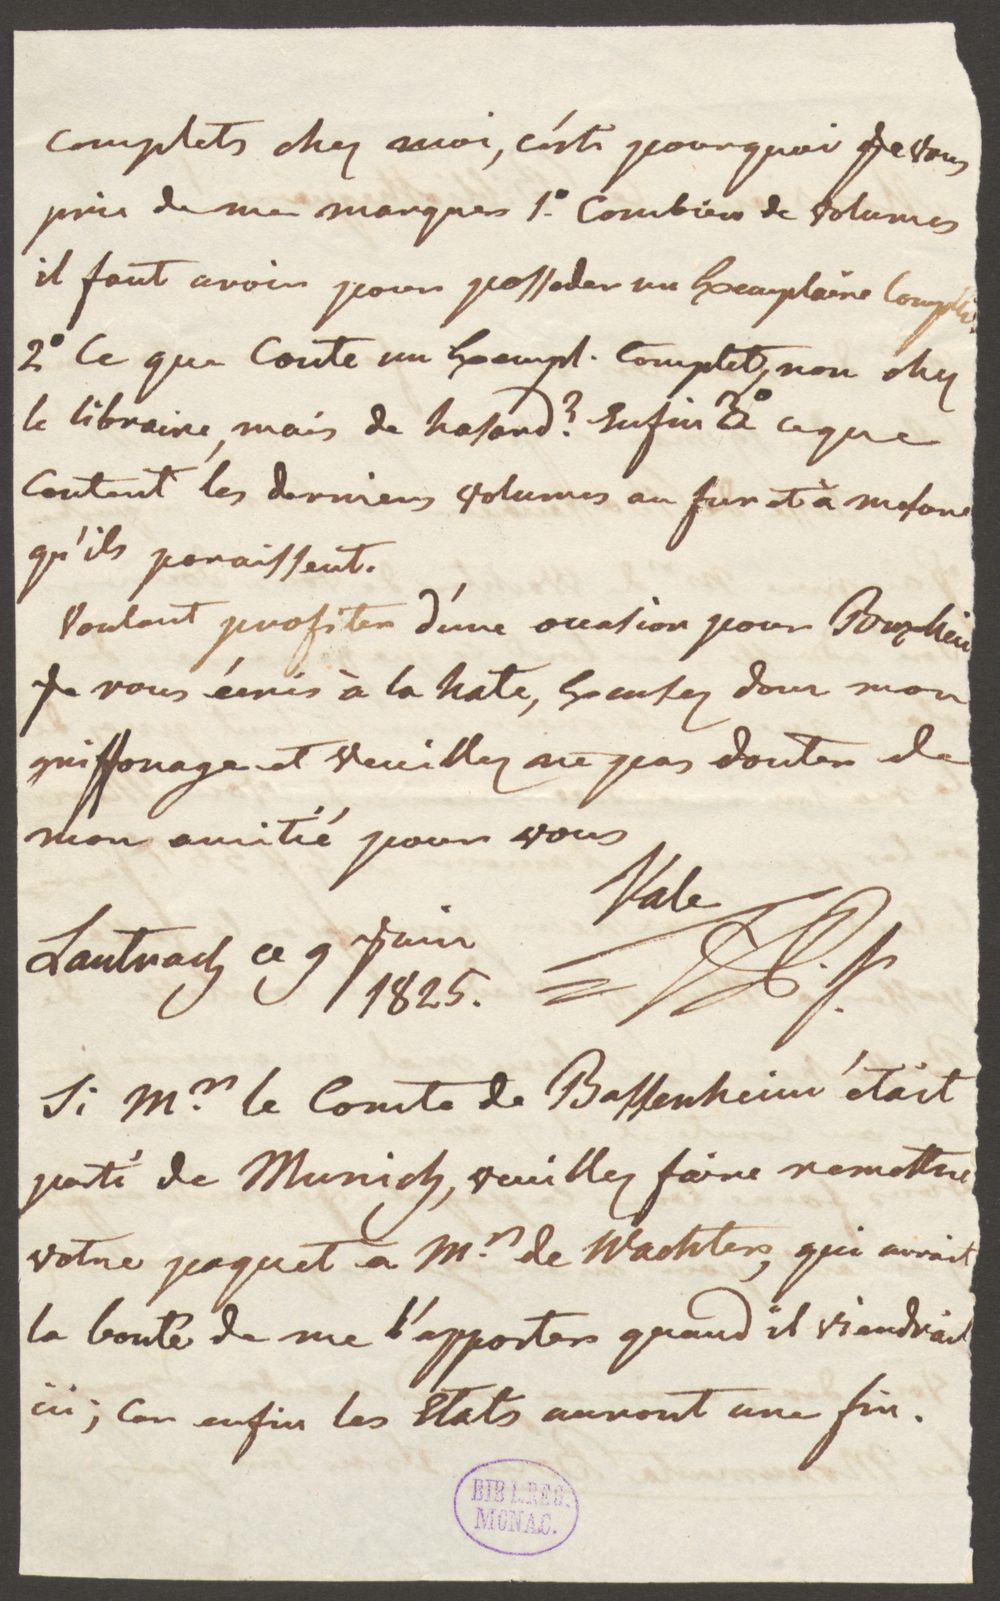 complets chez moi, c'est pourquoi Je vous
prie de me marquer 1.° Combien de volumes
il faut avoir pour posseder un Exemplaire Complet.
2° Ce que Coute un Exempl. Complet, non chez
le libraire, mais de hasard? Enfin 3° ce que
Coutent les derniers volumes au fur et à mesure
qu'ils paraissent.
Voulant profiter d'une occasion pour
Je vous écris à la hate, Excusez donc mon
griffonage et veuillez ne pas douter de
mon amitié pour vous
Vale
Lautrach ce 9 Juin
1825.
Si M.r le Comte de Bassenheim était
parti de Munich, veuillez faire remettre
votre paquet a M.r de Wachter, qui aurait
la bonté de me l'apporter quand il viendrait
ici; Car enfin les Etats auront une fin.
BIBL.REG.
MONAC.